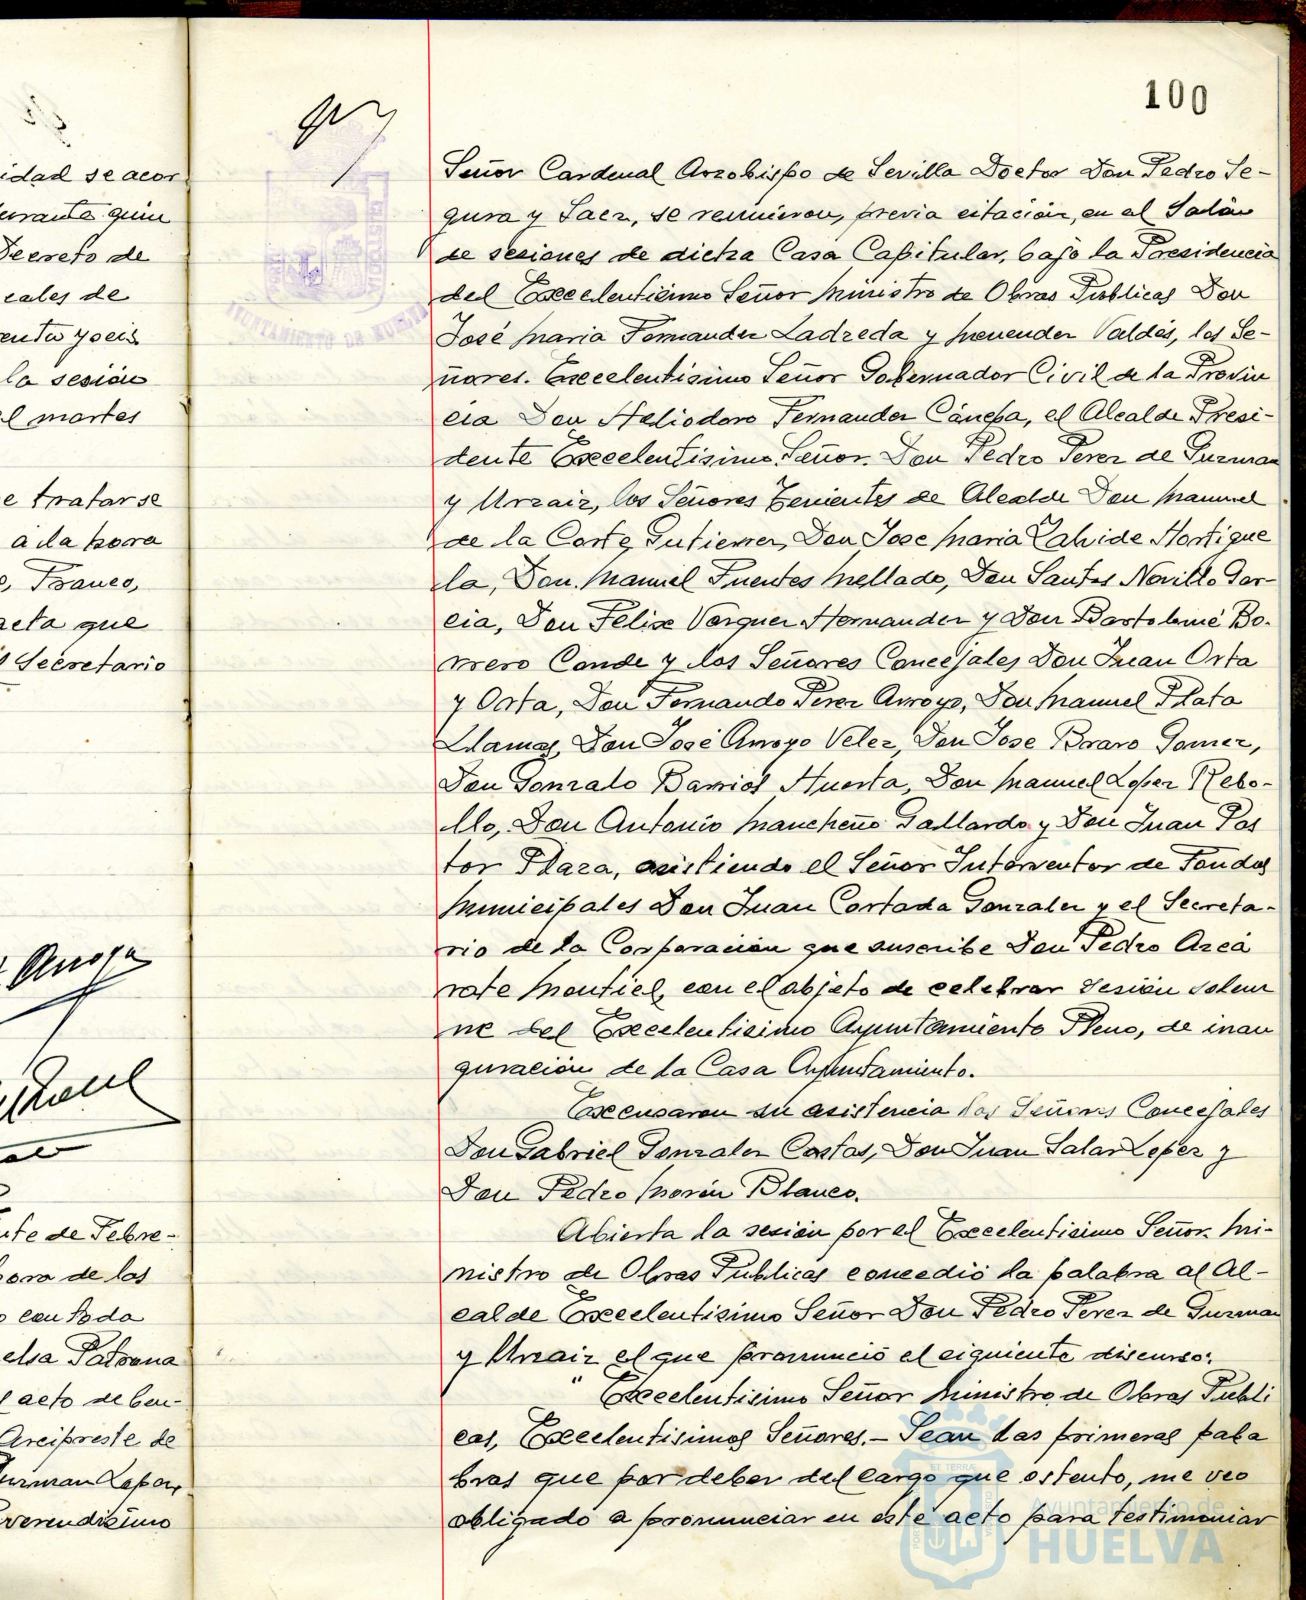 idad se acor
urante quin
Decreto de
cales de
enta y seis
la sesión
el martes
e tratarse
a la hora
o, Franco,
acta que
Secretario
Arroyo
nte de Febre-
hora de los
o con toda
elsa Patrona
l acto de ben-
Arcipreste de
uzman Lopez,
Reverendisimo
100
AYUNTAMIENTO DE HUELVA
Señor Cardenal Arzobispo de Sevilla Doctor Don Pedro Se-
gura y Saez, se reunieron, previa citación, en el Salón
de sesiones de dicha Casa Capitular, bajo la Presidencia
del Excelentisimo Señor Ministro de Obras Publicas Don
José Maria Fernandez Ladreda y Menendez Valdés, los Se-
ñores. Excelentisimo Señor Gobernador Civil de la Provin
cia Don Heliodoro Fernandez Cánepa, el Alcalde Presi-
dente Excelentisimo Señor. Don Pedro Perez de Guzman
y Urzaiz, los Señores Tenientes de Alcalde Don Manuel
de la Corte Gutierrez, Don Jose Maria Zahide Hortigue
la, Don. Manuel Fuentes Mellado, Don Santos Novillo Gar-
cia, Don Felixe Vazquez Hernandez y Don Bartolomé Bo-
rrero Conde y los Señores Concejales Don Juan Orta
y Orta, Don Fernando Perez Arroyo, Don Manuel Plata
Llamas, Don José Arroyo Velez, Don Jose Bravo Gomez,
Don Gonzalo Barrios Huerta, Don Manuel Lopez Rebo-
llo, Don Antonio Mancheño Gallardo y Don Juan Pas
tor Plaza, asistiendo el Señor Interventor de Fondos
Municipales Don Juan Cortada Gonzalez y el Secreta-
rio de la Corporación que suscribe Don Pedro Azcá
rate Montiel, con el objeto de celebrar sesión solem
ne del Excelentisimo Ayuntamiento Pleno, de inau
guración de la Casa Ayuntamiento.
Excusaron su asistencia los Señores Concejales
Don Gabriel Gonzalez Costas, Don Juan Salas Lopez y
Don Pedro Morón Blanco.
Abierta la sesión por el Excelentisimo Señor Mi-
nistro de Obras Publicas concedió la palabra al Al-
calde Excelentisimo Señor Don Pedro Perez de Guzman
y Urzaiz el que pronunció el siguiente discurso:
" Excelentisimo Señor Ministro de Obras Publi
cas, Excelentisimos Señores.- Sean las primeras pala
bras que por deber del cargo que ostento, me veo
obligado a pronunciar en este acto para testimoniar
Ayuntamiento de
HUELVA